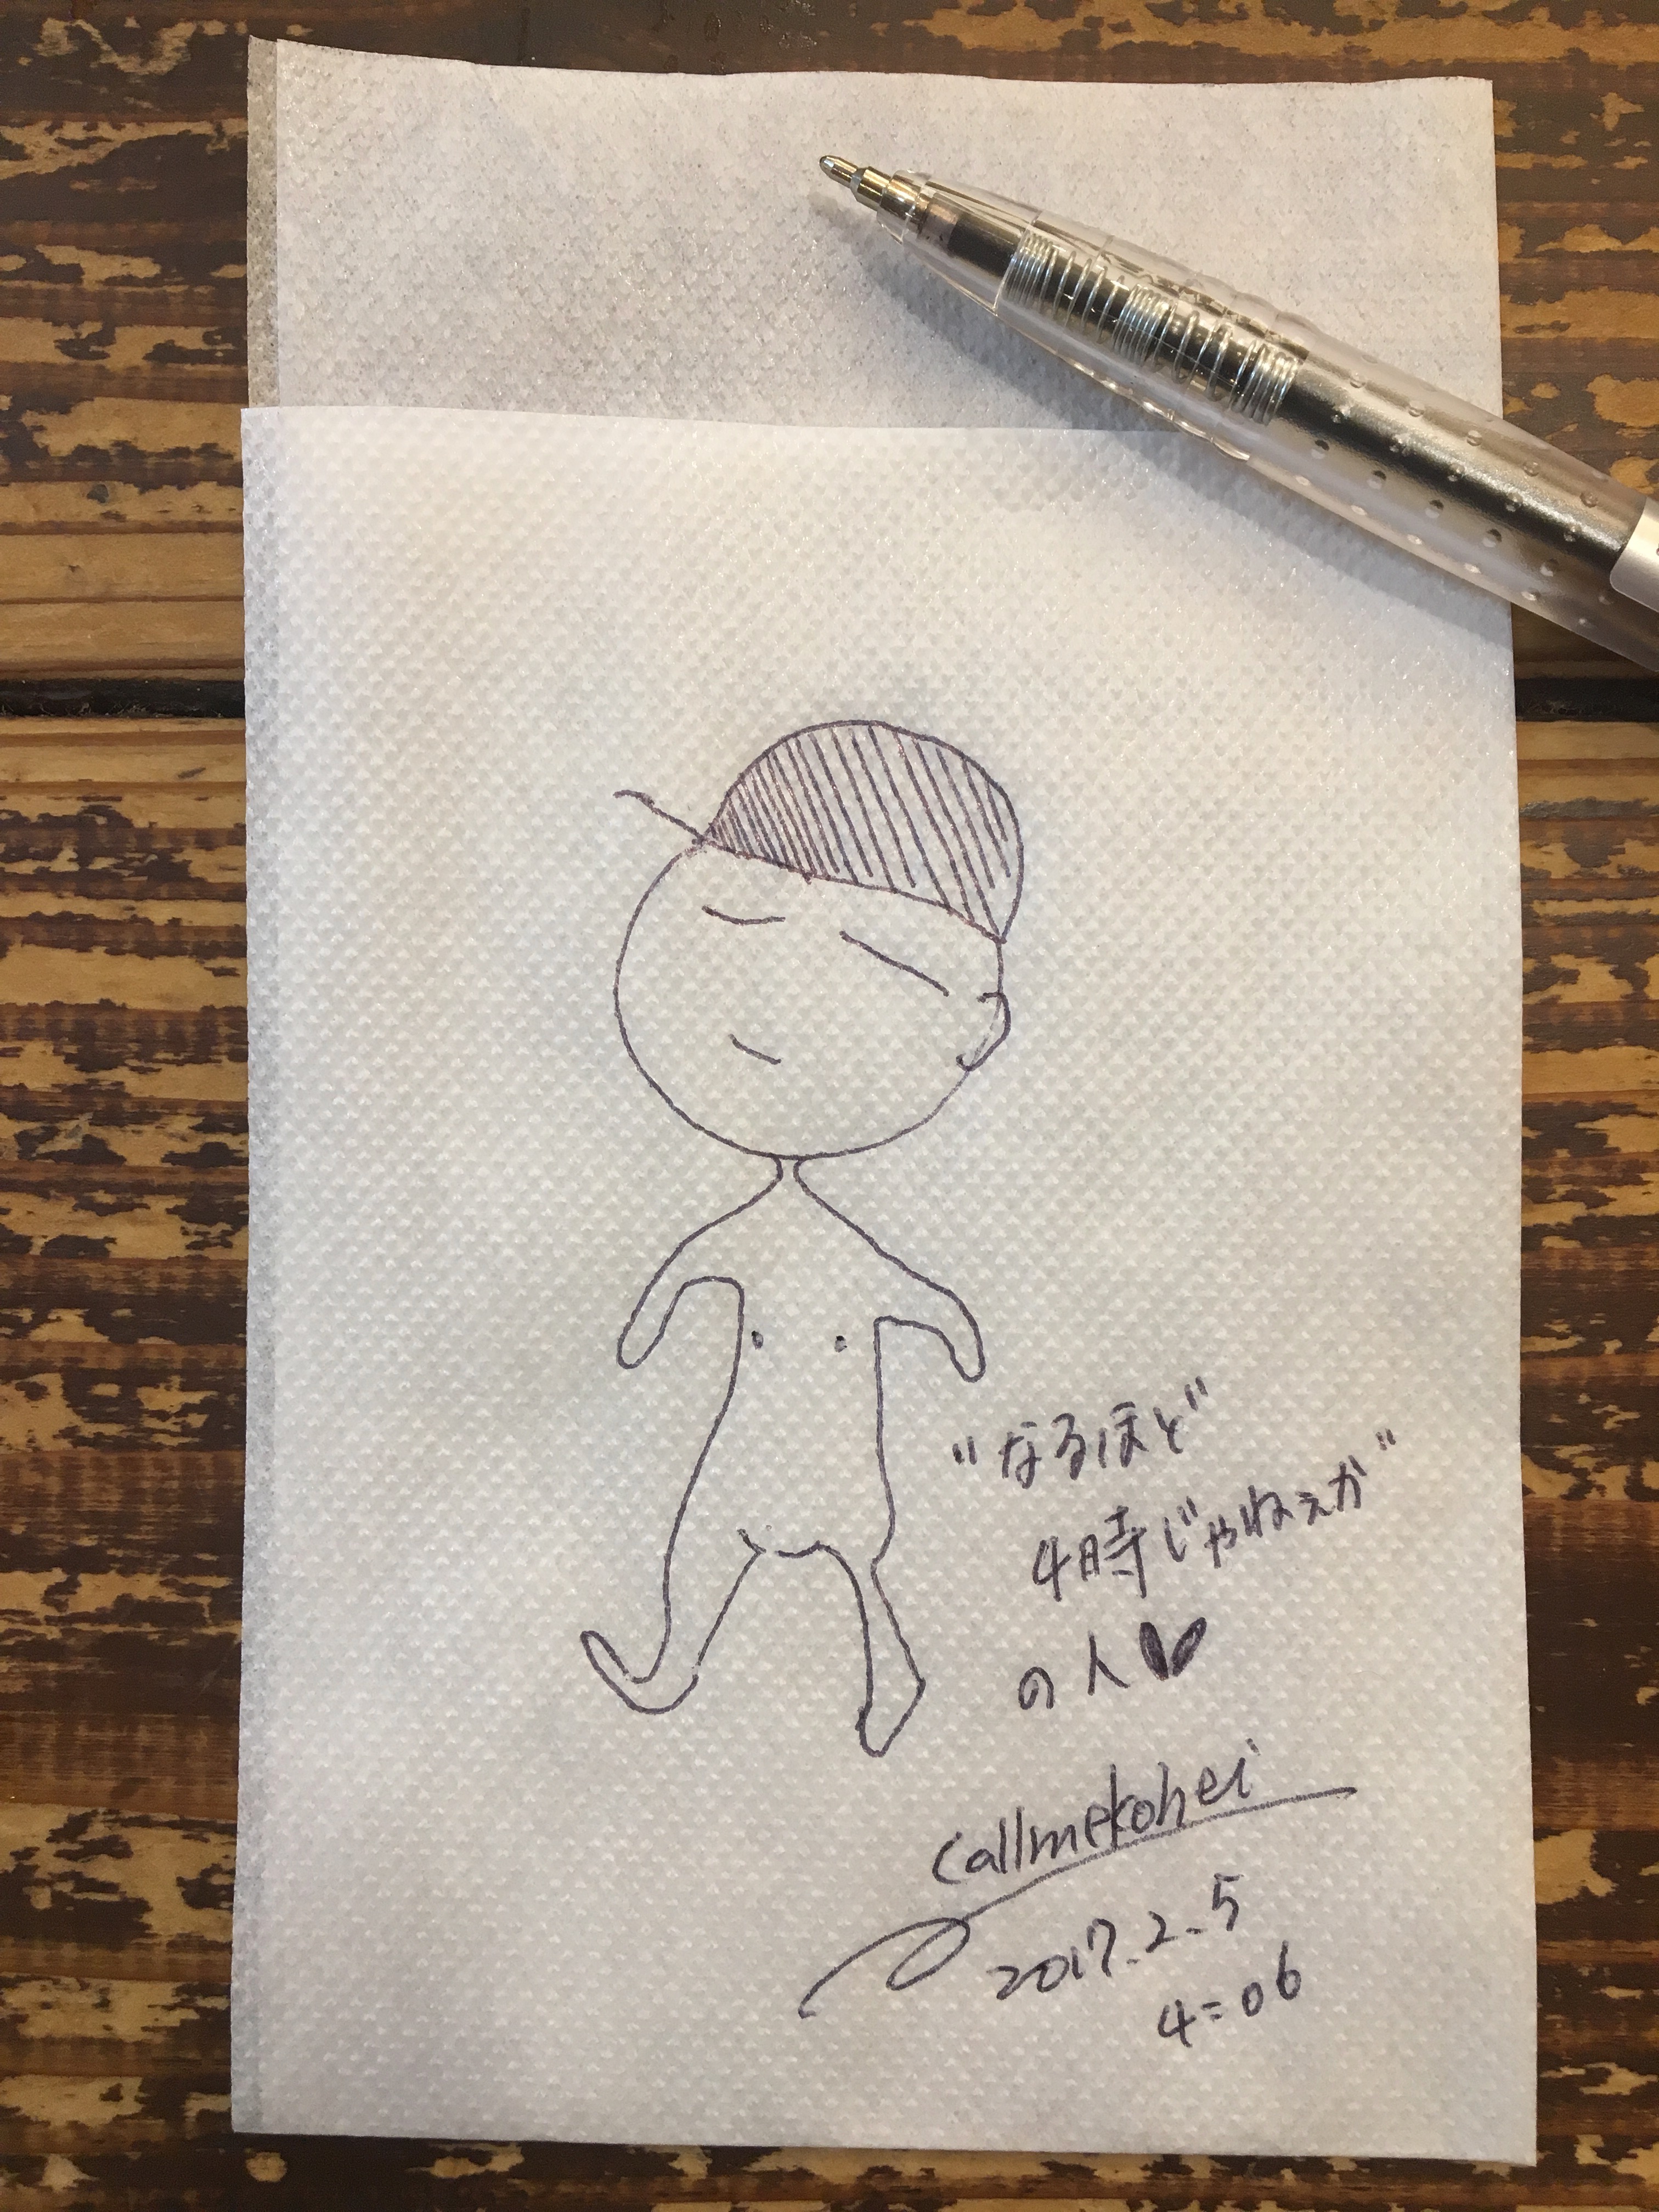 "なるほど"
4時じゃねぇか"
の人♥
callmekohei
2017.2.5
4:06